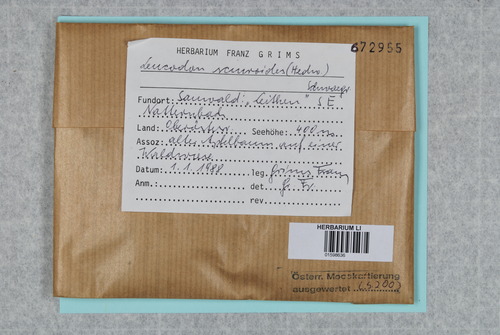 672955
HERBARIUM FRANZ GRIMS
Leucodon sciuroides (Hedw.)
Schwaegr.
Fundort: Sauwald: „Leithen" S E
Natternbach
Land: Oberösterr. Seehöhe: 400 m
Assoz: alter Apfelbaum auf einer
Waldwiese
Datum: 1.1.1988 leg. Grims Franz
Anm.: det. Gr. Fr.
rev.
HERBARIUM LI
01598636
Österr. Mooskartierung
ausgewertet